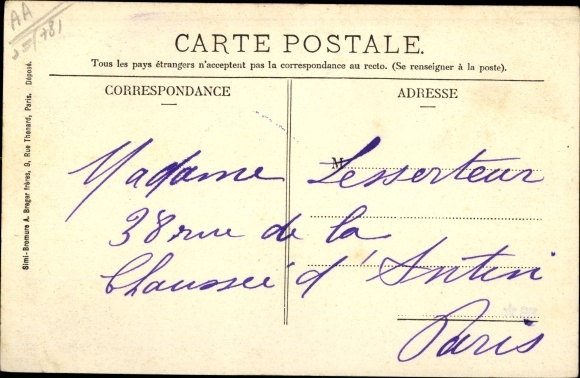 AA
CARTE POSTALE.
Tous les pays étrangers n'acceptent pas la correspondance au recto. (Se renseigner à la poste).
CORRESPONDANCE
ADRESSE
M
Madame Lesserteur
38 rue de la
Chaussée d'Antin
Paris
Simi-Bromure A. Breger frères, 9, Rue Thenard, Paris. Déposé.